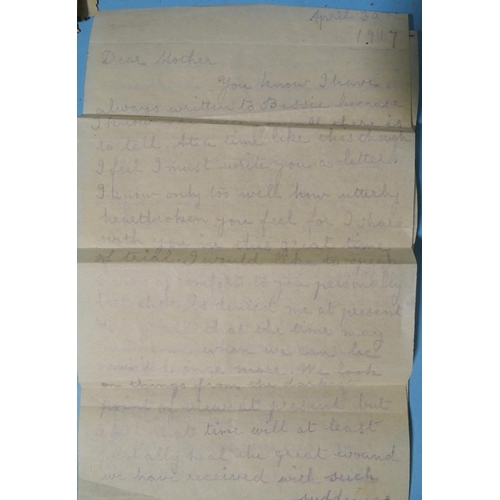 April 29
1917
Dear Mother
You know I have
always written to Bessie because
I know all there is
to tell. At a time like this though
I feel I must write you a letter
I know only too well how utterly
heartbroken you feel for I share
with you in this great time
of trial. I would like to
of comfort to you personally
but that is denied me at present
that the time may
when we can be
once more. We look
on things from the darkest
point of view at present but
time will at least
partially heal the great wound
we have received with such
suddenness